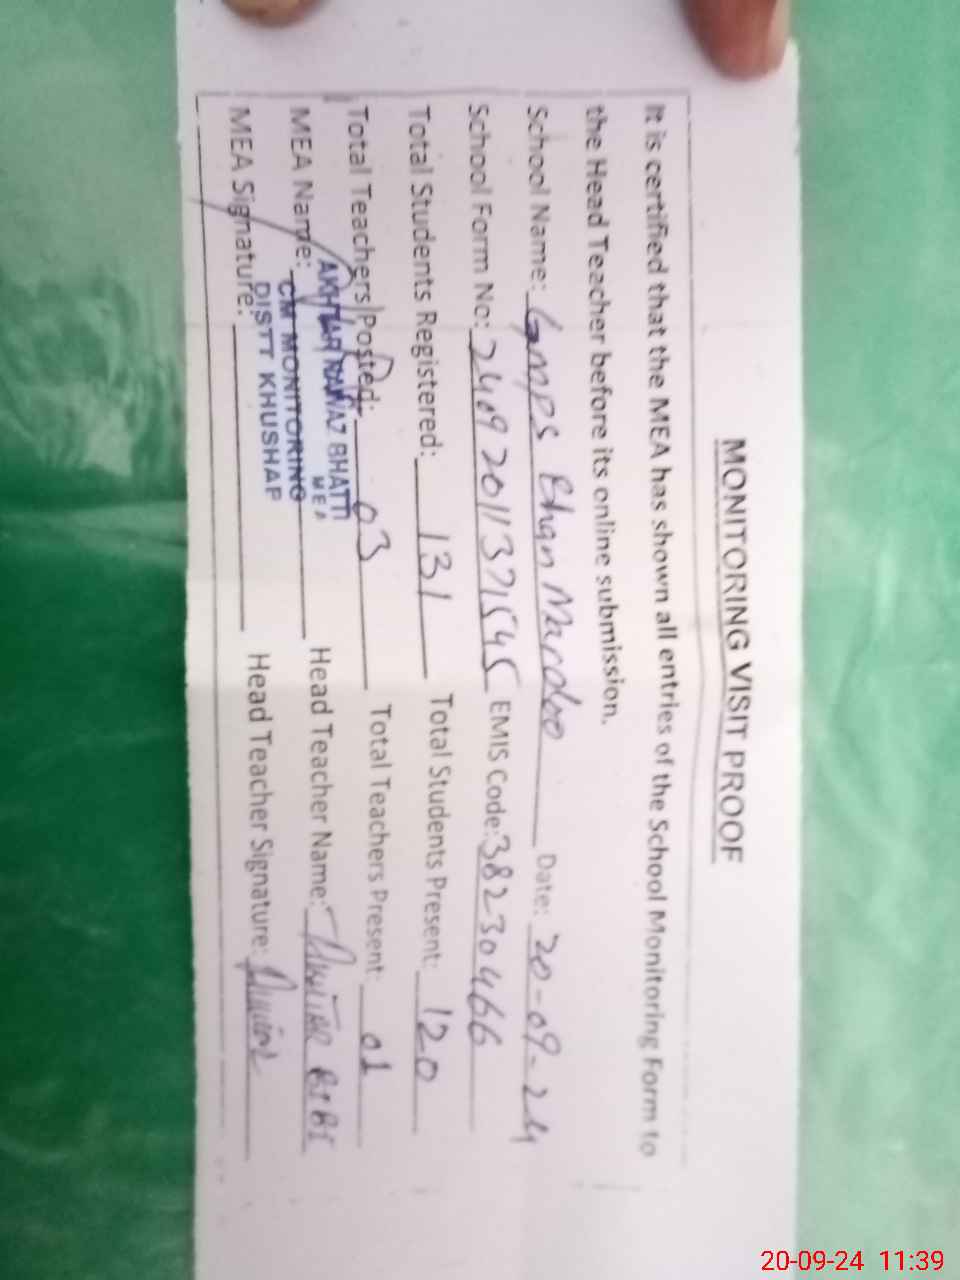 MONITORING VISIT PROOF
It is certified that the MEA has shown all entries of the School Monitoring Form to
the Head Teacher before its online submission.
School Name: Gmps Bhan Mardoo Date: 20-09-24
School Form No: 24092011371545 EMIS Code: 38230466
Total Students Registered: 131 Total Students Present: 120
Total Teachers Posted: 03 Total Teachers Present: 01
MEA Name: AKHTAR NAWAZ BHATTI Head Teacher Name: BIBI
MEA
CM MONITORING
DISTT KHUSHAP
MEA Signature: Head Teacher Signature:
20-09-24 11:39